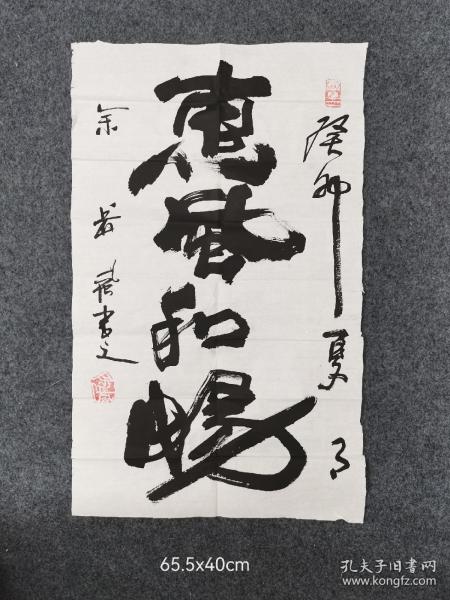 癸卯夏月
惠風和暢
余
書之
65.5x40cm
孔夫子旧书网
www.kongfz.com